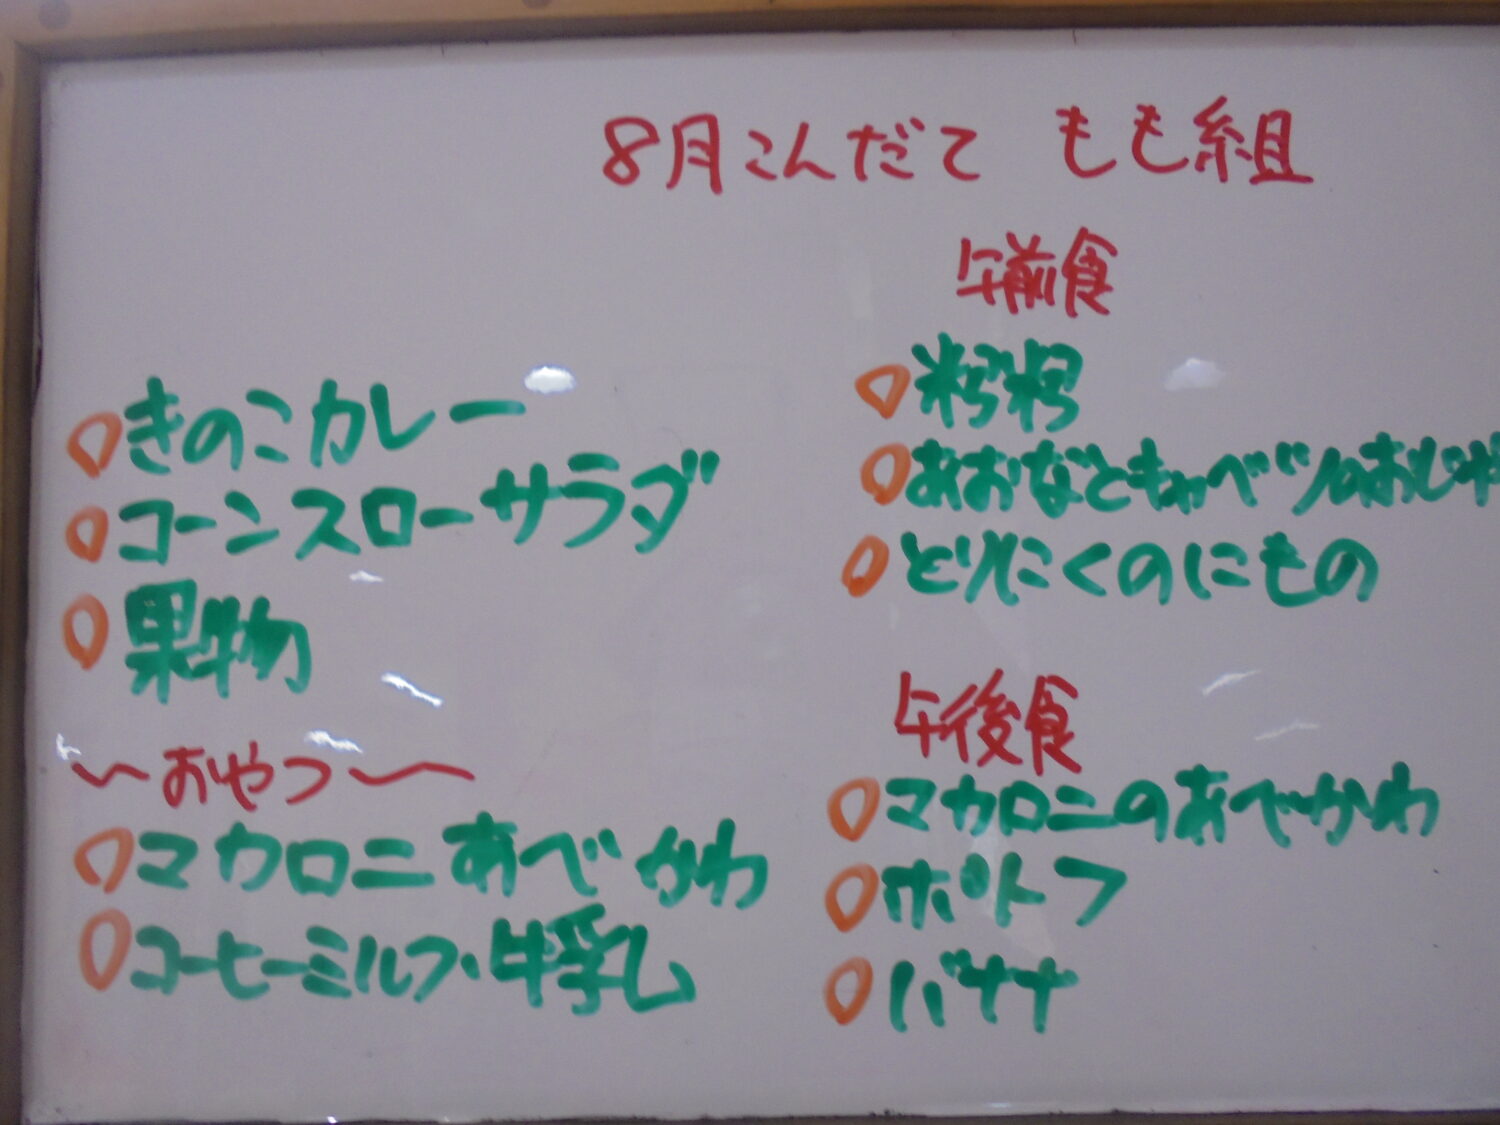 8月こんだて もも組
きのこカレー
コーンスローサラダ
果物
〜おやつ〜
マカロニあべかわ
コーヒーミルク・牛乳
午前食
あおなとキャベツのおじや
とりにくのにもの
午後食
マカロニのあべかわ
ポトフ
バナナ